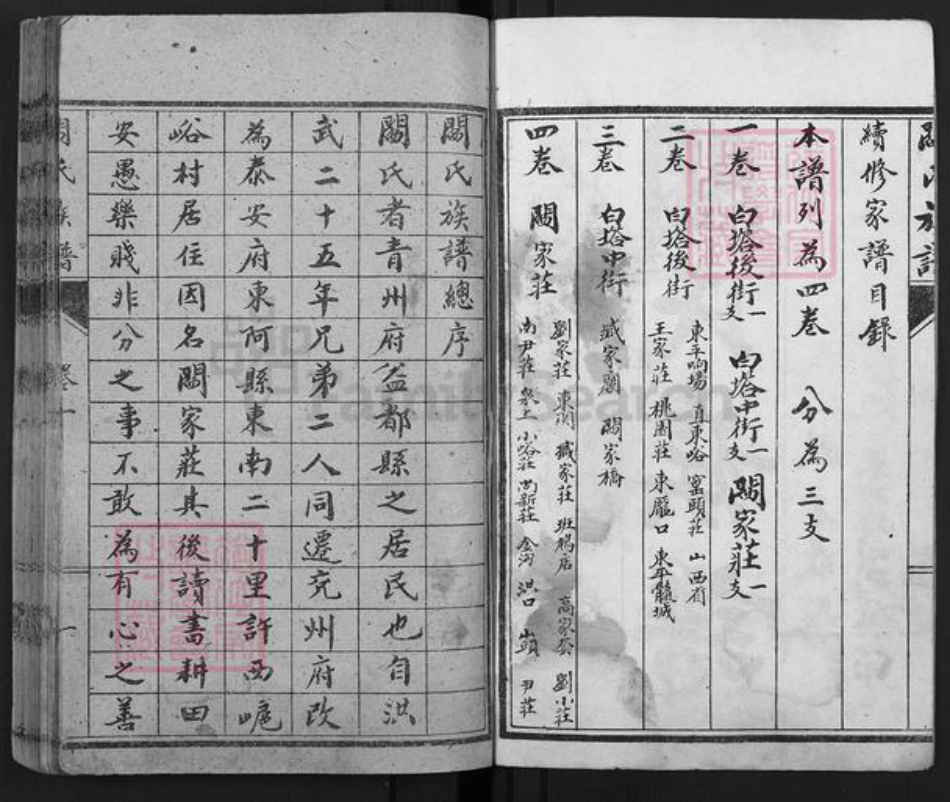 續修家譜目錄
本譜列為四卷 分為三支
一卷 白塔後街一支 白塔中街一支 關家莊一支
二卷 白塔後街
東平响場 直東峪 窰頭莊 山西省
王家莊 桃園莊 東龐口 東平龍城
三卷 白塔中街 臧家關 關家橋
四卷 關家莊
劉家莊 東關 臧家莊 班鳩店 高家套 劉小莊
南尹莊 小峪莊 尚新莊 金溝 洪口 山頭 尹莊
關氏族譜總序
關氏者青州府益都縣之居民也自洪
武二十五年兄弟二人同遷兗州府改
為泰安府東阿縣東南二十里許西嶇
峪村居住因名關家莊其後讀書耕田
安愚樂賤非分之事不敢為有心之善
氏族譜 卷一 一